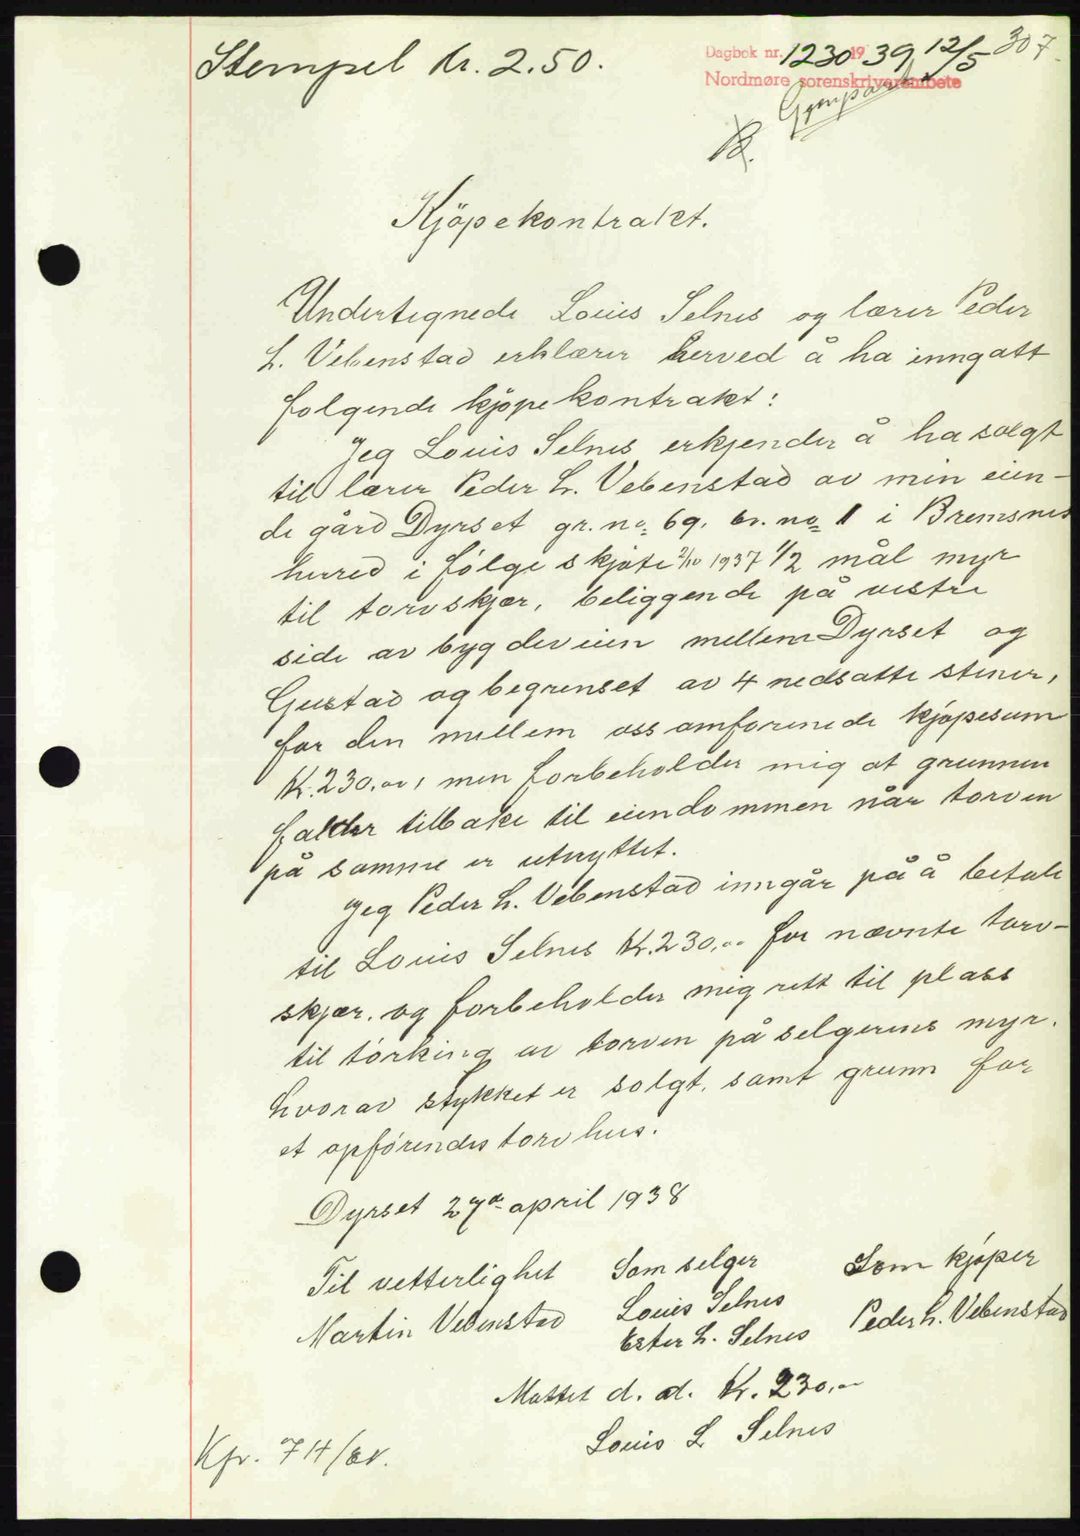 Stempel kr. 2.50.
Dagbok nr. 1230 1939 12/5 307.
Nordmøre sorenskriverembete
B.
Kjöpekontrakt.
Undertegnede Louis Selnes og lærer Peder
L. Vebenstad erklærer herved å ha inngått
følgende kjöpekontrakt:
Jeg Louis Selnes erkjender å ha solgt
til lærer Peder L. Vebenstad av min eien-
de gård Dyrset gr. no. 69. br. no. 1 i Bremsnes
herred i følge skjøte 2/10 1937 1/2 mål myr
til torvskjær, beliggende på vestre
side av bygdeveien mellem Dyrset og
Gustad og begrenset av 4 nedsatte stener,
for den mellem oss omforenede kjøpesum
kr. 230.00, men forbeholder mig at grunnen
falder tilbake til eiendommen når torven
på samme er utnyttet.
Jeg Peder L. Vebenstad inngår på å betale
til Louis Selnes kr. 230.00 for nævnte torv-
skjær. og forbeholder mig rett til plass
til törking av torven på selgerens myr.
hvorav stykket er solgt, samt grunn for
et opförendes torvhus.
Dyrset 27de april 1938
Til vetterlighet Som selger Som kjöper
Martin Vebenstad Louis Selnes Peder L. Vebenstad
Ester L. Selnes
Mottet d. d. kr. 230.00
Louis L Selnes
Kfr. 74/